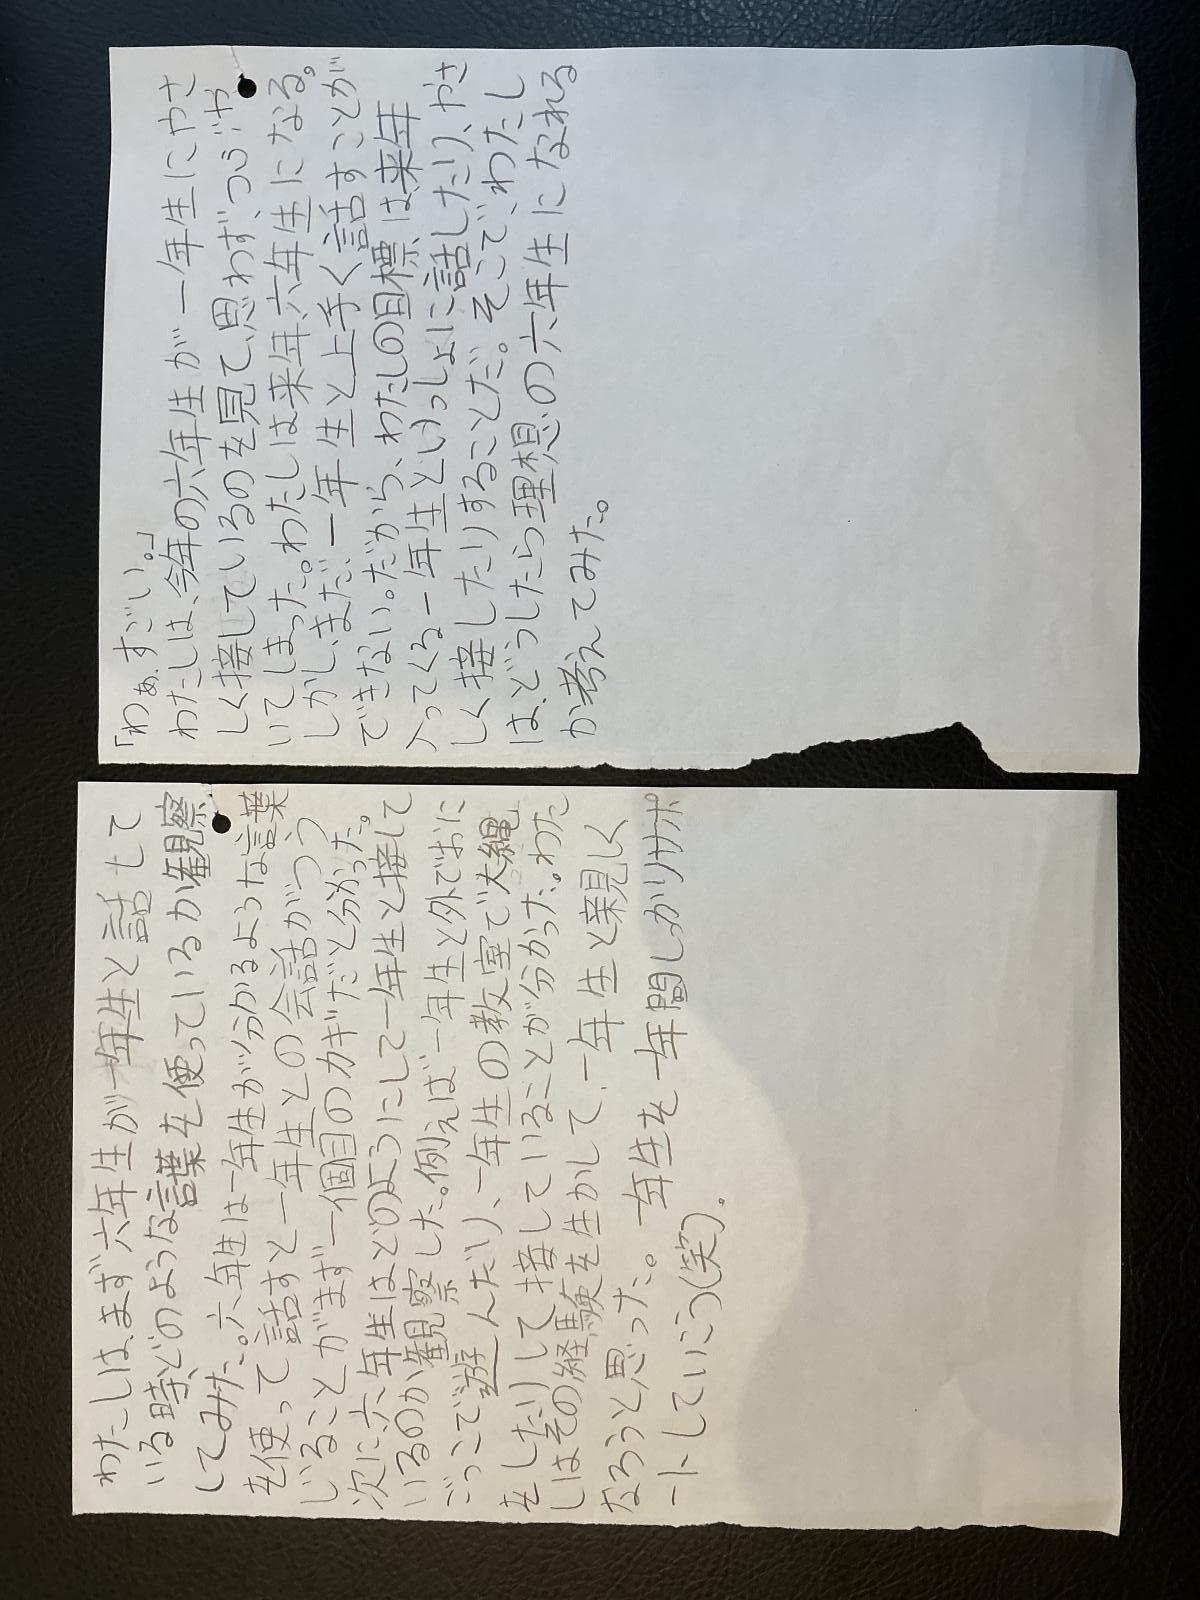 「わぁ、すごい。」
わたしは、今年の六年生が一年生にやさ
しく接しているのを見て、思わず、つぶや
いてしまった。わたしは来年、六年生になる。
しかし、まだ、一年生と上手く話すことが
できない。だから、わたしの目標は、来年
入ってくる一年生といっしょに話したり、やさ
しく接したりすることだ。そこで、わたし
は、どうしたら理想の六年生になれる
か考えてみた。
わたしは、まず六年生が一年生と話して
いる時、どのような言葉を使っているか観察
してみた。六年生は一年生が分かるような言葉
を使って話すと一年生との会話がつう
じることがまず一個目のカギだと分かった。
次に六年生はどのようにして一年生と接して
いるのか観察した。例えば一年生と外でおに
ごっこで遊んだり、一年生の教室で大縄
をしたりして接していることが分かった。わた
しはその経験を生かして、一年生と親しく
なろうと思った。一年生を一年間しっかりサポ
ートしていこう(笑)。